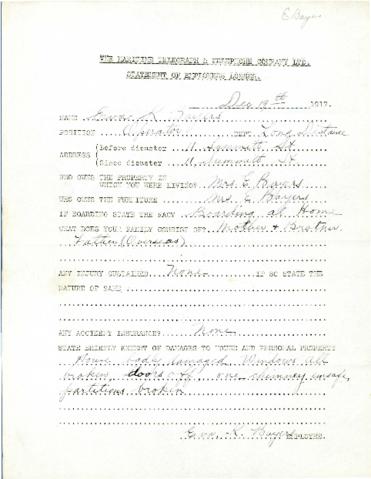 E Bayers
THE MARITIME TELEGRAPH & TELEPHONE COMPANY LTD.
STATEMENT OF EMPLOYEES LOSSES.
Dec 19th 1917.
NAME K. Bayers
POSITION Operator DEPT. Long Distance
ADDRESS (Before disaster 11 Summit St
(Since disaster 11 Summit St
WHO OWNS THE PROPERTY IN
WHICH YOU WERE LIVING? Mrs E Bayers
WHO OWNS THE FURNITURE Mrs. E Bayers
IF BOARDING STATE THE FACT Boarding at Home
WHAT DOES YOUR FAMILY CONSIST OF? Mother & Brother
Father (Overseas)
ANY INJURY SUSTAINED None IF SO STATE THE
NATURE OF SAME
ANY ACCIDENT INSURANCE? None
STATE BRIEFLY EXTENT OF DAMAGES TO HOUSE AND PERSONAL PROPERTY
House badly damaged, Windows all
broken, doors off, one chimney unsafe,
partitions broken
K. Bayers EMPLOYEE.